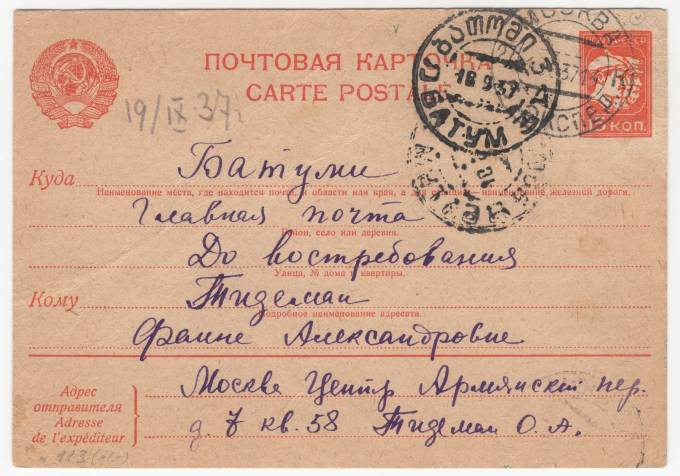 ПОЧТОВАЯ КАРТОЧКА
CARTE POSTALE
19/IX 37г
ბათომი
18 9 37
БАТУМ
МОСКВА
КОП.
Куда Батуми
Наименование места, где находится почта, и области или края, а для станции наименование железной дороги.
Главная почта
Район, село или деревня.
До востребования
Улица, № дома и квартиры.
Кому Тидеман
Подробное наименование адресата.
Фаине Александровне
Адрес отправителя
Adresse de l'expéditeur
Москва Центр Армянский пер.
д. 7 кв. 58 Тидеман О. А.